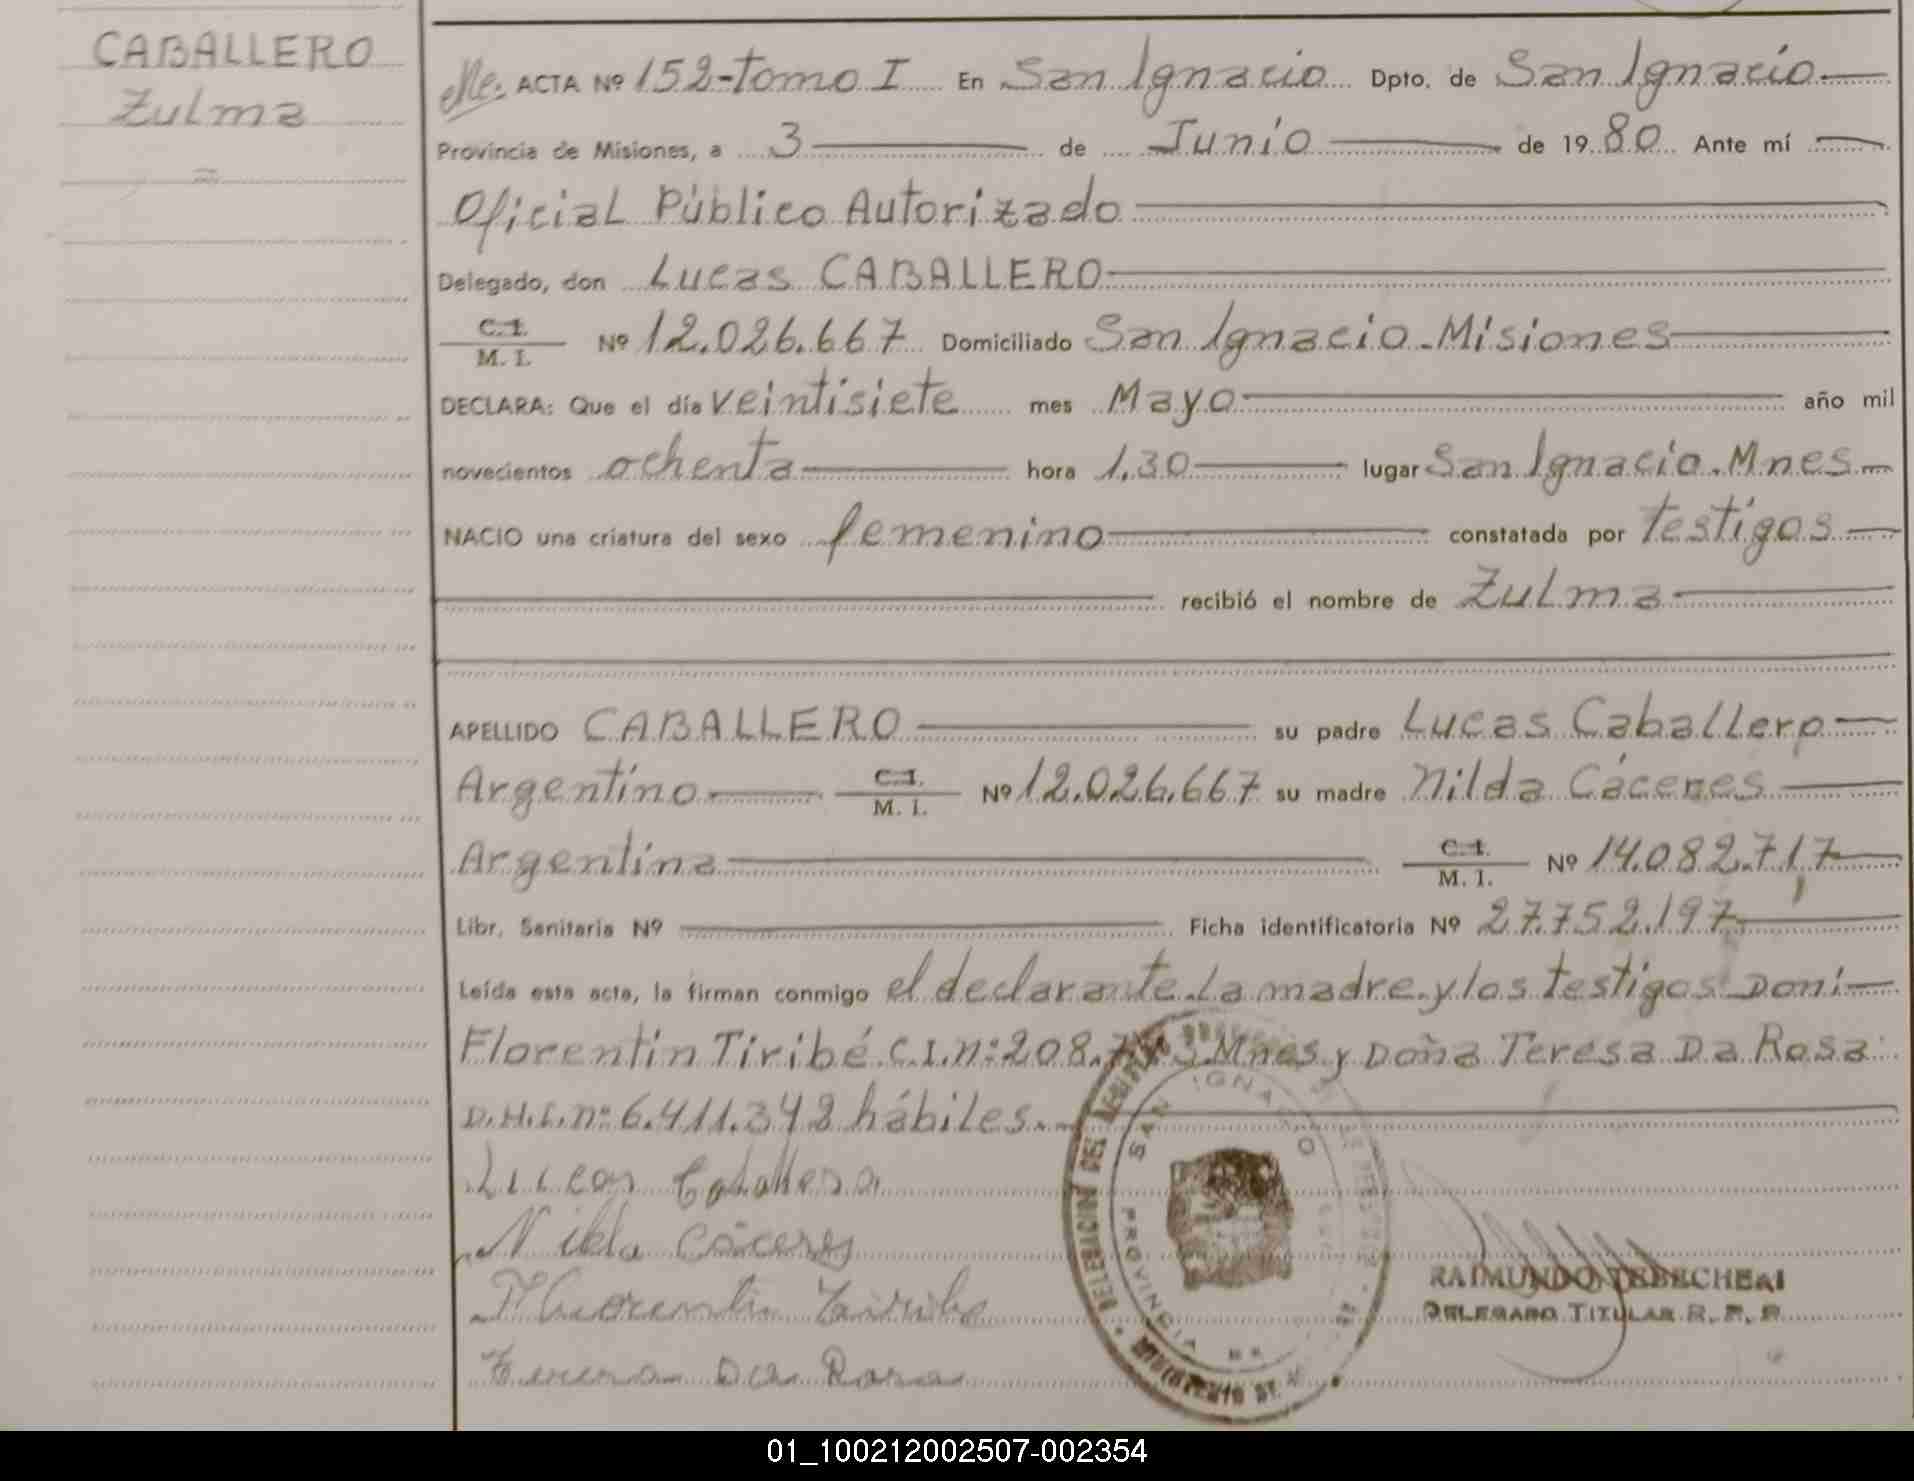 CABALLERO
Zulma
=
ACTA Nº 152-tomo I En San Ignacio Dpto. de San Ignacio
Provincia de Misiones, a 3 de Junio de 1980 Ante mí
Oficial Público Autorizado
Delegado, don Lucas CABALLERO
C.I.
M. I. Nº 12.026.667 Domiciliado San Ignacio-Misiones
DECLARA: Que el día veintisiete mes Mayo año mil
novecientos ochenta hora 1.30 lugar San Ignacio.Mnes
NACIO una criatura del sexo femenino constatada por testigos
recibió el nombre de Zulma
APELLIDO CABALLERO su padre Lucas Caballero
Argentino C.I. M. I. Nº 12.026.667 su madre Nilda Cáceres
Argentina C.I. M. I. Nº 14.082.717
Libr. Sanitaria Nº Ficha identificatoria Nº 27.752.197
Leída esta acta, la firman conmigo el declarante.La madre.y los testigos Don:
Florentin Tiribé.C.I.nº 208. Mnes y Doña Teresa Da Rosa
D.N.I.nº 6.411.348 hábiles.
Lucas Caballero
Nilda Cáceres
Fluorentin Tiribe
Teresa Da Rosa
DELEGACION DEL REGISTRO PROVINCIAL DE LAS PERSONAS
SAN IGNACIO
PROVINCIA
RAIMUNDO TEBECHERI
DELEGADO TITULAR R. P. P.
01_100212002507-002354